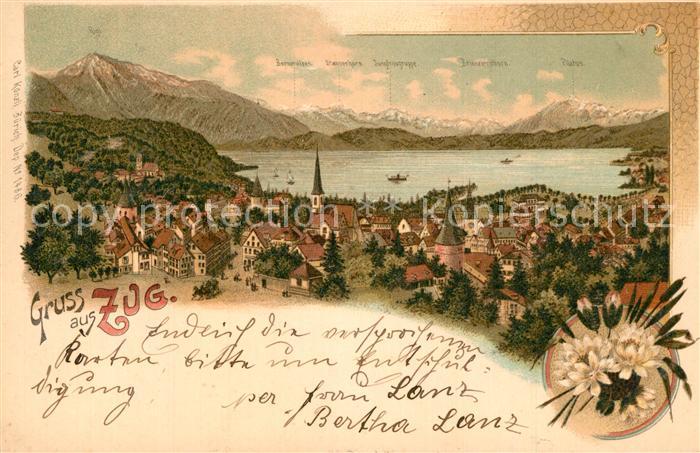 Rigi
Berneralpen. Stanserhorn. Jungfraugruppe. Brienzerrothorn. Pilatus.
Carl Künzli, Zürich, Dep. Nº
www.postcards-kopierschutz
Gruss
aus ZUG.
Endlich die versprochenen
Karten, bitte um Entschul-
digung
per Frau Lanz
Bertha Lanz